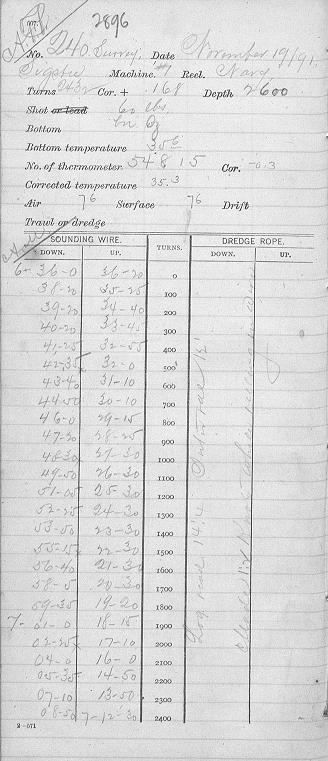 2896
No. 240 Survey, Date November 19/91
Sigsbee Machine. Reel. Navy
Turns 2432 Cor. + .168 Depth 2600
Shot or lead 60 lbs.
Bottom bn Oz
Bottom temperature 35.6
No. of thermometer 54815 Cor. -0.3
Corrected temperature 35.3
Air 76 Surface 76 Drift
Trawl or dredge
SOUNDING WIRE. TURNS. DREDGE ROPE.
DOWN. UP. DOWN. UP.
6-36-0 36-20 0
38-20 35-25 100
39-20 34-40 200
40-20 33-45 300
41-25 32-55 400
42-35 32-0 500
43-40 31-10 600
44-50 30-10 700
46-0 29-15 800
47-20 28-25 900
48-30 27-30 1000
49-50 26-30 1100
51-05 25-30 1200
52-25 24-30 1300
53-50 23-30 1400
55-15 22-30 1500
56-40 21-30 1600
58-5 20-30 1700
59-35 19-20 1800
7-01-0 18-15 1900
02-25 17-10 2000
04-0 16-0 2100
05-35 14-50 2200
07-10 13-50 2300
08-50 7-12-30 2400
2-571